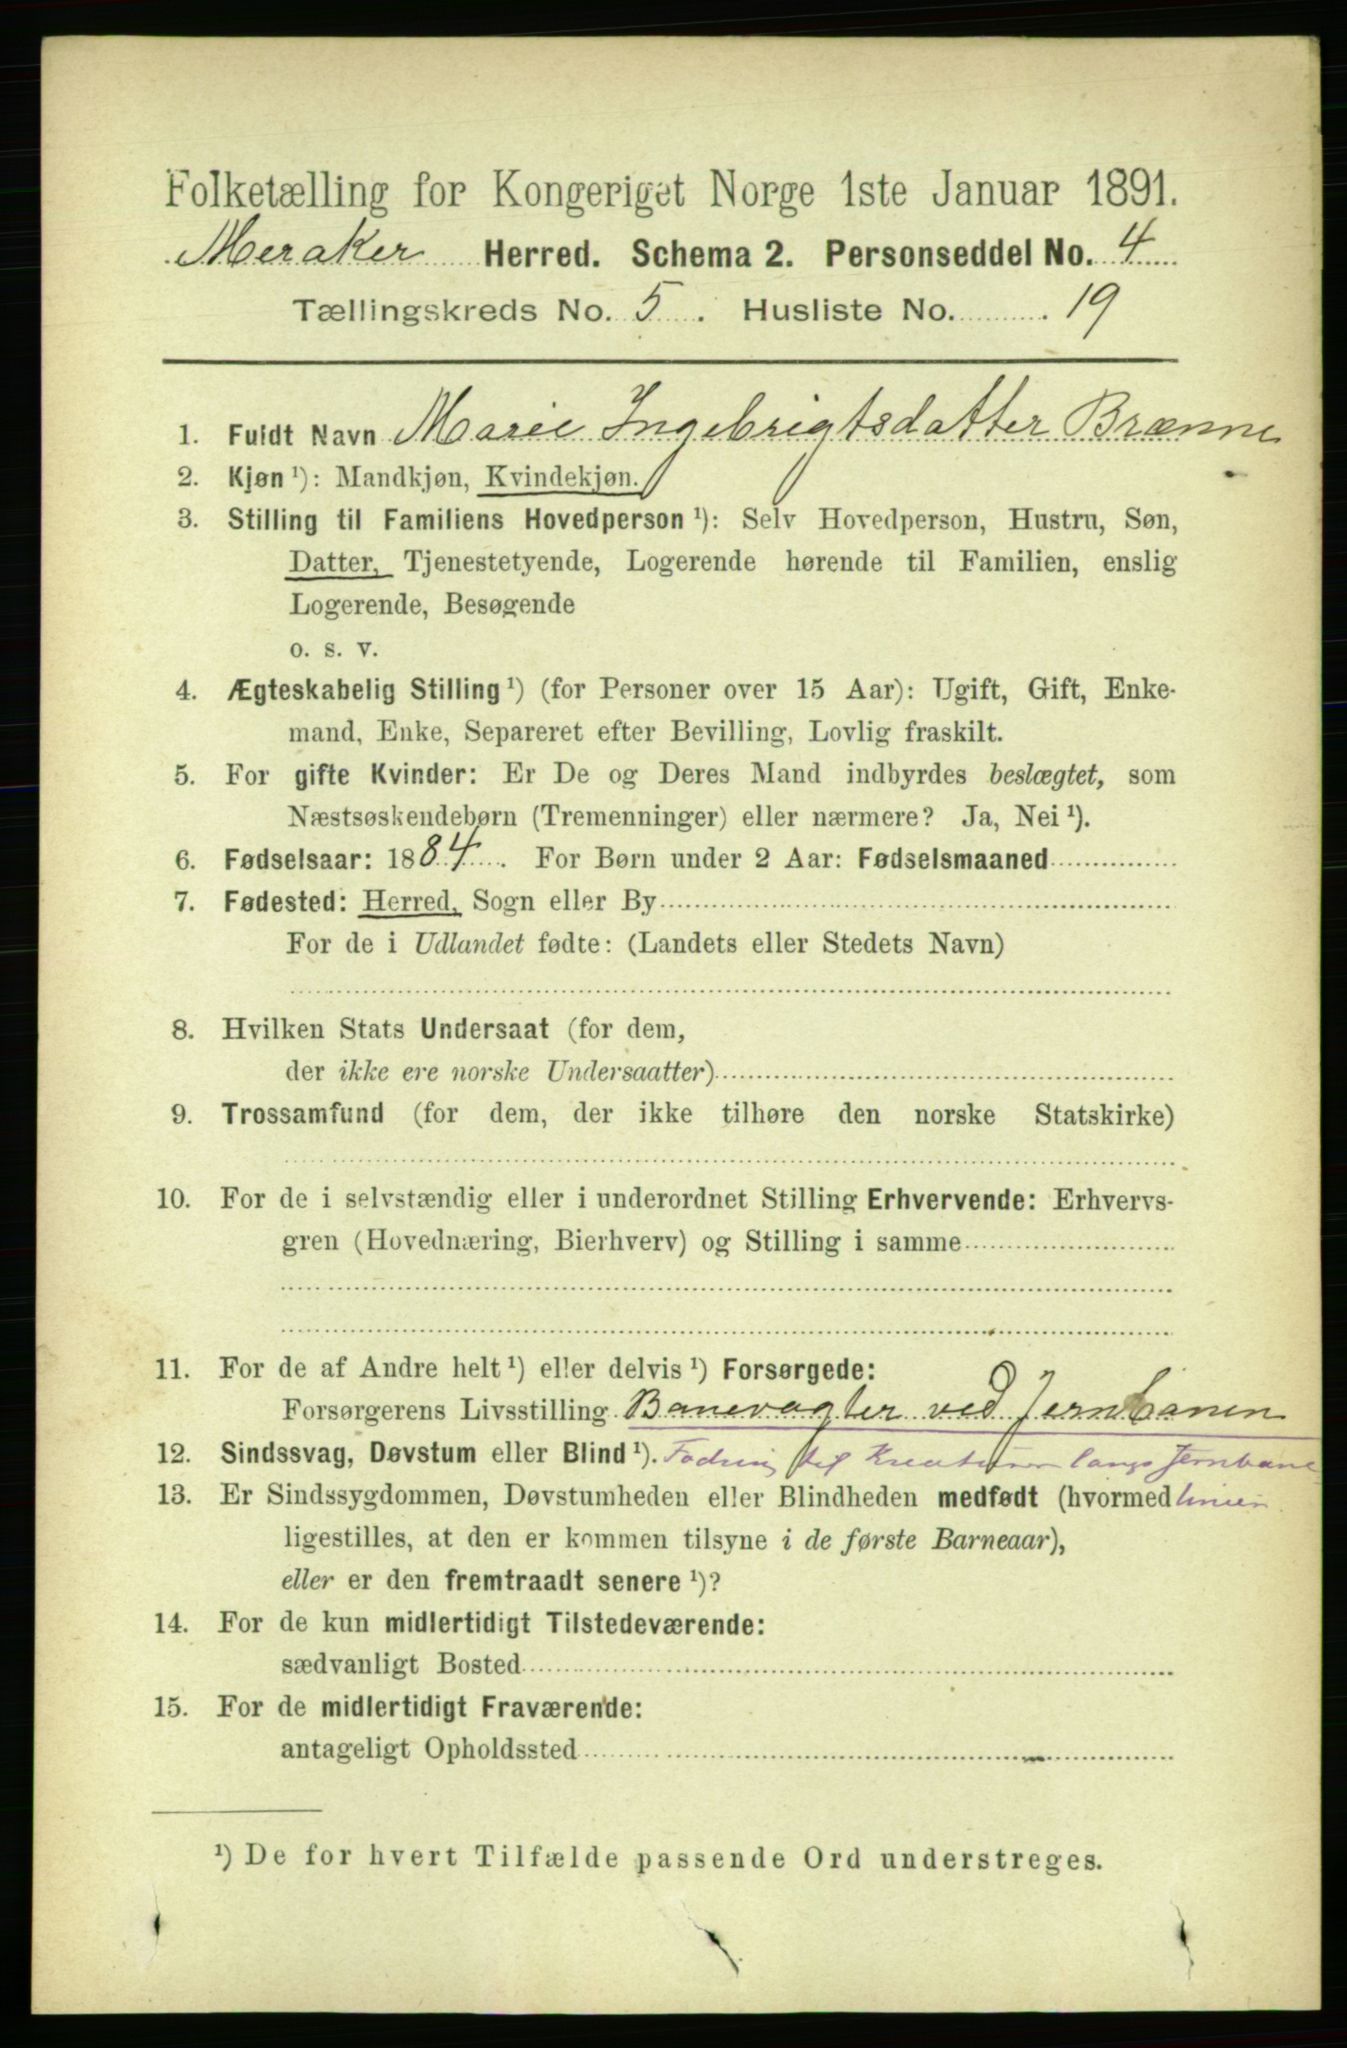 Folketælling for Kongeriget Norge 1ste Januar 1891.
Meraker Herred. Schema 2. Personseddel No. 4
Tællingskreds No. 5. Husliste No. 19
1. Fuldt Navn Marie Ingebrigtsdatter Brænne
2. Kjøn ¹): Mandkjøn, Kvindekjøn.
3. Stilling til Familiens Hovedperson ¹): Selv Hovedperson, Hustru, Søn,
Datter, Tjenestetyende, Logerende hørende til Familien, enslig
Logerende, Besøgende
o. s. v.
4. Ægteskabelig Stilling ¹) (for Personer over 15 Aar): Ugift, Gift, Enke-
mand, Enke, Separeret efter Bevilling, Lovlig fraskilt.
5. For gifte Kvinder: Er De og Deres Mand indbyrdes beslægtet, som
Næstsøskendebørn (Tremenninger) eller nærmere? Ja, Nei ¹).
6. Fødselsaar: 1884. For Børn under 2 Aar: Fødselsmaaned
7. Fødested: Herred, Sogn eller By
For de i Udlandet fødte: (Landets eller Stedets Navn)
8. Hvilken Stats Undersaat (for dem,
der ikke ere norske Undersaatter)
9. Trossamfund (for dem, der ikke tilhøre den norske Statskirke)
10. For de i selvstændig eller i underordnet Stilling Erhvervende: Erhvervs-
gren (Hovednæring, Bierhverv) og Stilling i samme
11. For de af Andre helt ¹) eller delvis ¹) Forsørgede:
Forsørgerens Livsstilling Banevogter ved Jernbanen
12. Sindssvag, Døvstum eller Blind ¹). til Kreaturer langs Jernbane
13. Er Sindssygdommen, Døvstumheden eller Blindheden medfødt (hvormed linien
ligestilles, at den er kommen tilsyne i de første Barneaar),
eller er den fremtraadt senere ¹)?
14. For de kun midlertidigt Tilstedeværende:
sædvanligt Bosted
15. For de midlertidigt Fraværende:
antageligt Opholdssted
¹) De for hvert Tilfælde passende Ord understreges.